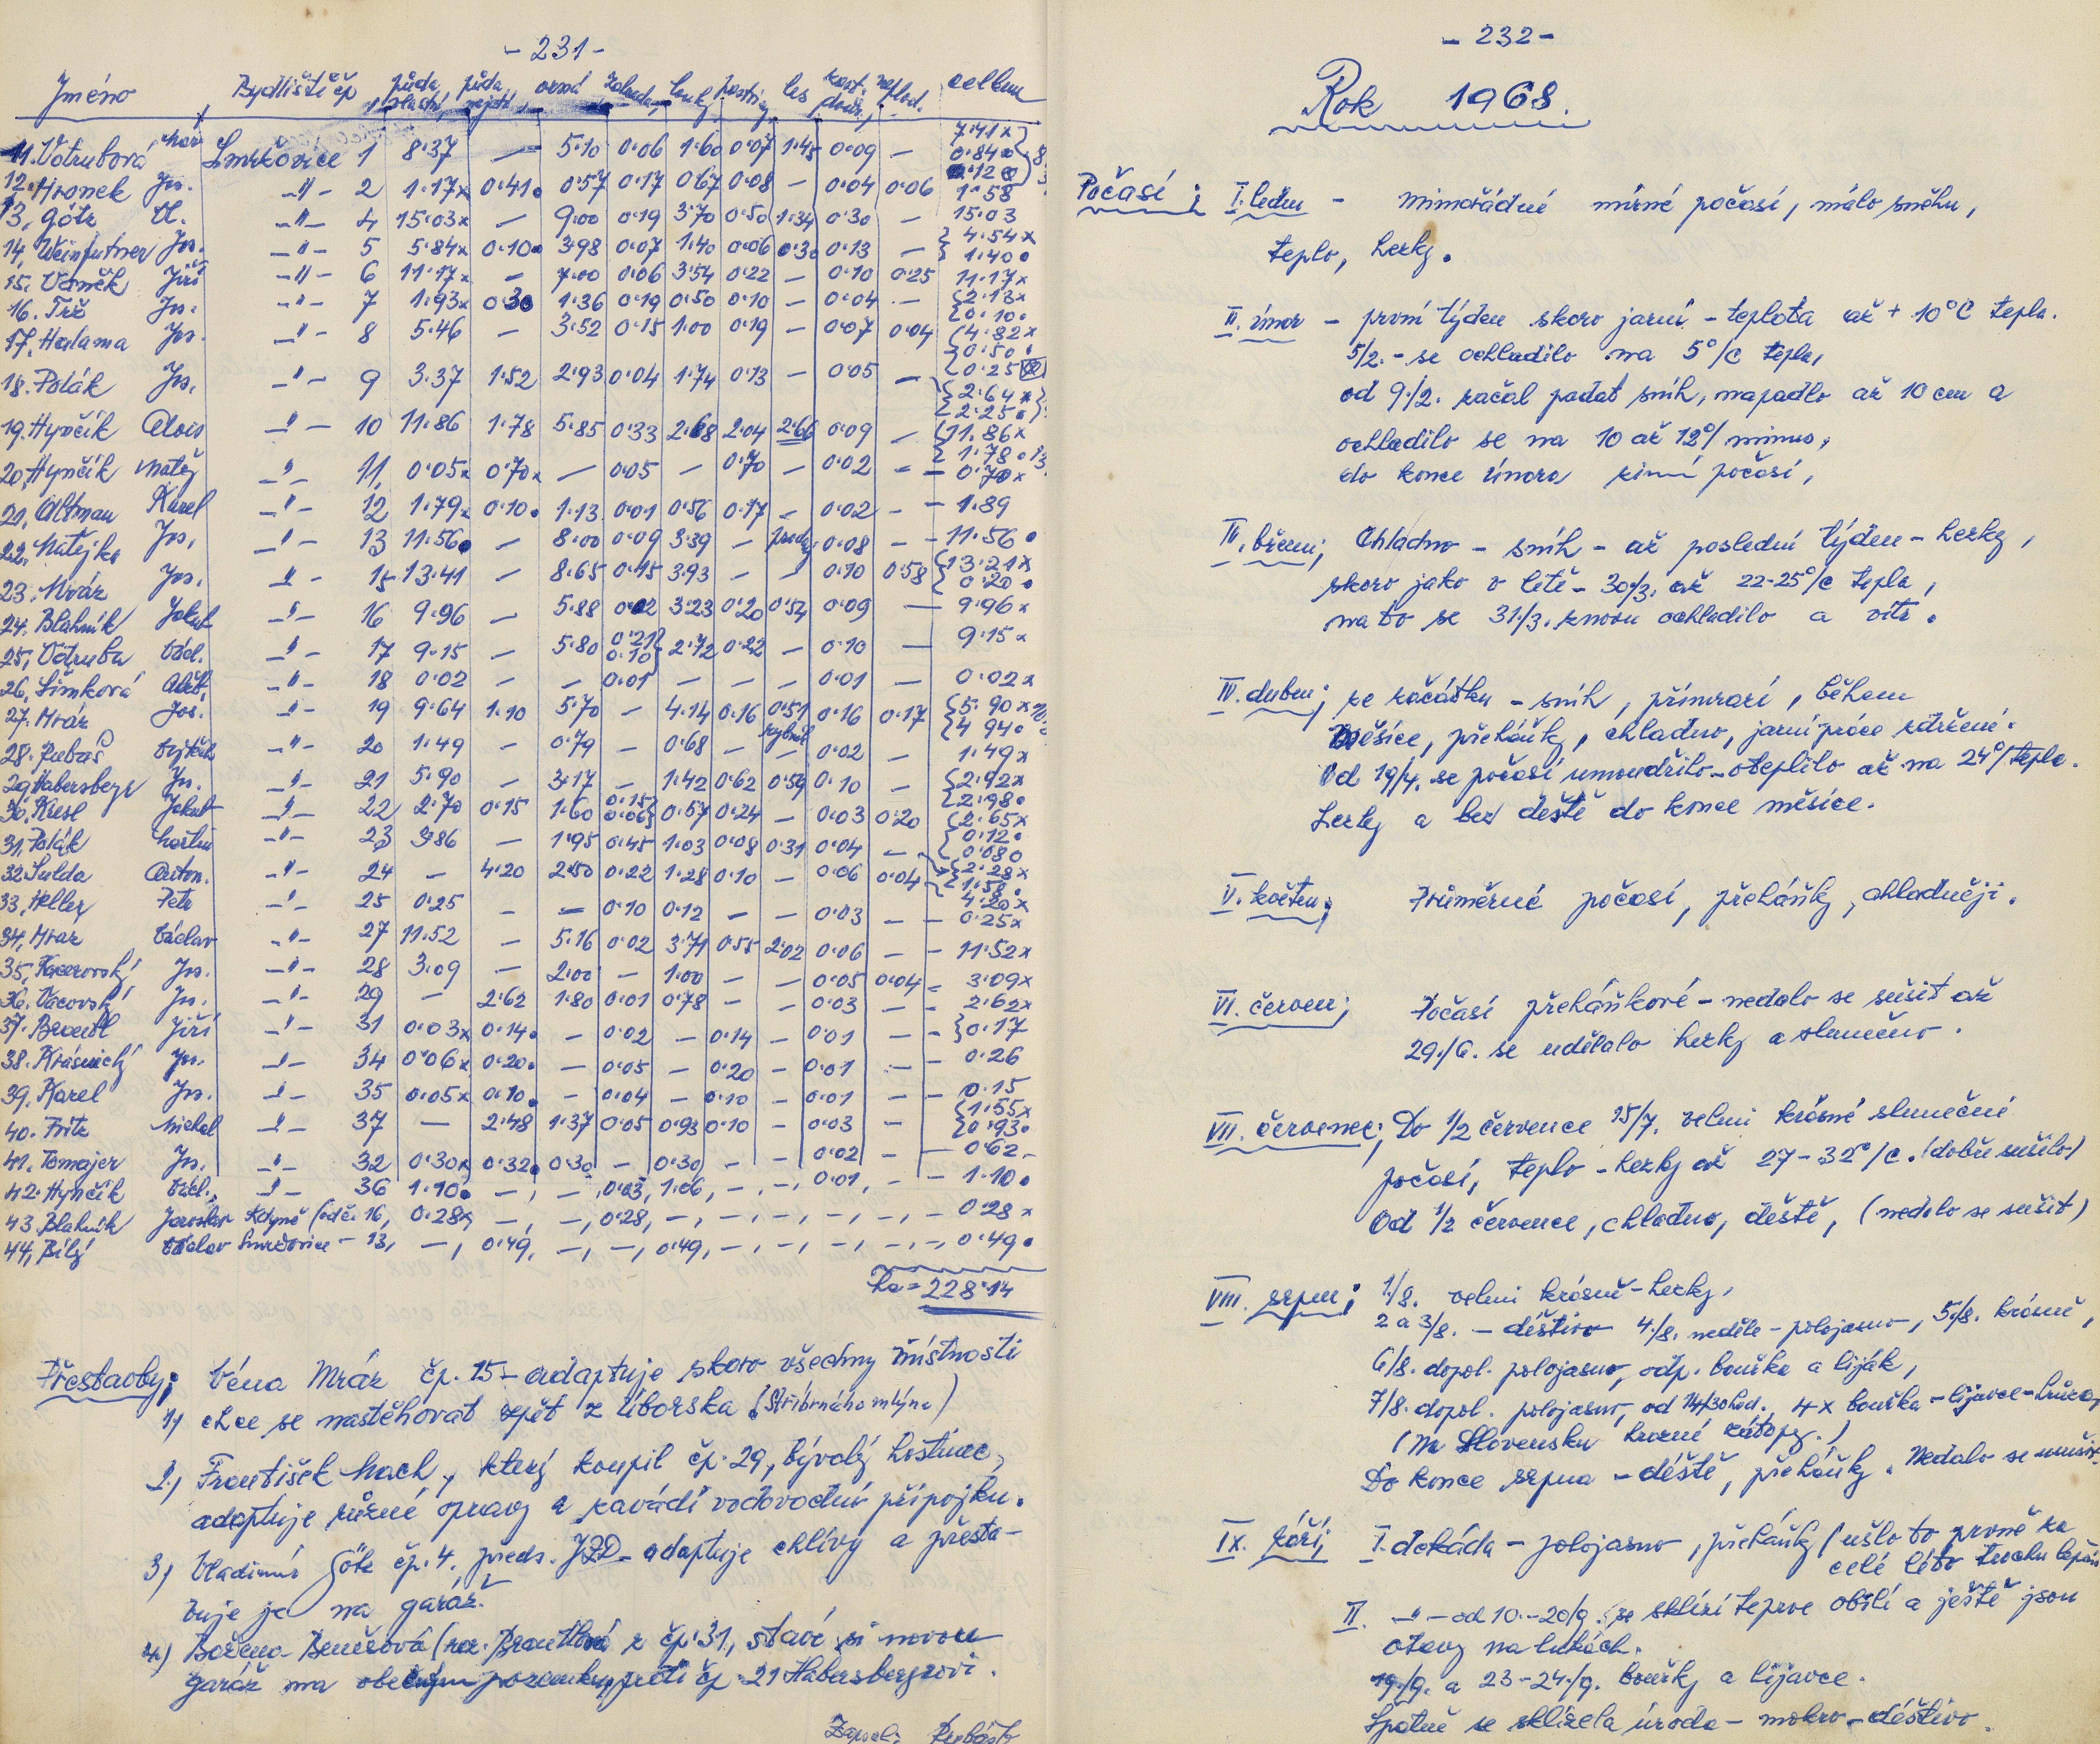 - 231 -
Jméno Bydliště čp půda vlastní půda orná zahrada louky pastviny les zast. neplod. celkem
11. Votrubová Mar. Smržovice 1 8·37 — 5·10 0·06 1·60 0·07 1·45 0·09 — 7·41x 0·84 0·12
12. Hronek Jos. -"- 2 1·17x 0·41. 0·57 0·17 0·67 0·08 — 0·04 0·06 1·58
13, Götz Vl. -"- 4 15·03x — 9·00 0·19 3·70 0·50 1·34 0·30 — 15·03
14, Weinfurtner Jos. -"- 5 5·84x 0·10. 3·98 0·07 1·40 0·06 0·30 0·13 — 4·54x 1·40.
15. Vaněk Jiří -"- 6 11·17x — 7·00 0·06 3·54 0·22 — 0·10 0·25 11·17x
16. Jos. -"- 7 1·93x 0·30 1·36 0·19 0·50 0·10 — 0·04 — 2·13x 0·10.
17. Halama Jos. -"- 8 5·46 — 3·52 0·15 1·00 0·19 — 0·07 0·04 4·82x 0·50.
18. Polák Jos. -"- 9 3·37 1·52 2·93 0·04 1·74 0·13 — 0·05 — 0·25 2·64x 2·25.
19. Hynčík Alois -"- 10 11·86 1·78 5·85 0·33 2·68 2·04 2·66 0·09 — 11·86x 1·78.
20, Hynčík Matěj -"- 11, 0·05x 0·70x — 0·05 — 0·70 — 0·02 — — 0·70x
21, Altman Karel -"- 12 1·79x 0·10. 1·13 0·01 0·56 0·17 — 0·02 — — 1·89
22. Matějka Jos. -"- 13 11·56. — 8·00 0·09 3·39 — prodej 0·08 — — 11·56.
23. Mráz Jos. -"- 15 13·41 — 8·65 0·15 3·93 — — 0·10 0·58 13·21x 0·20.
24. Blahník Jakub -"- 16 9·96 — 5·88 0·02 3·23 0·20 0·54 0·09 — 9·96x
25, Votruba Václ. -"- 17 9·15 — 5·80 0·21 0·10 2·72 0·22 — 0·10 — 9·15x
26, Šimková -"- 18 0·02 — — 0·01 — — — 0·01 — 0·02x
27. Mráz Jos. -"- 19 9·64 1·10 5·70 — 4·14 0·16 0·51 0·16 0·17 5·90x 4·94.
28. Vojtěch -"- 20 1·49 — 0·79 — 0·68 — rybník — 0·02 — 1·49x
29, Habersberger Jos. -"- 21 5·90 — 3·17 — 1·42 0·62 0·59 0·10 — 2·92x 2·98.
30, Jakub -"- 22 2·70 0·15 1·60 0·15 0·06 0·57 0·24 — 0·03 0·20 2·65x 0·12. 0·08
31, Polák Martin -"- 23 3·86 — 1·95 0·45 1·03 0·08 0·31 0·04 — 2·28x 1·58.
32. Sulda Anton. -"- 24 — 4·20 2·50 0·22 1·28 0·10 — 0·06 0·04 4·20x
33, Heller Petr -"- 25 0·25 — — 0·10 0·12 — — 0·03 — — 0·25x
34, Mraz Václav -"- 27 11·52 — 5·16 0·02 3·71 0·55 2·02 0·06 — — 11·52x
35, Kacerovský Jos. -"- 28 3·09 — 2·00 — 1·00 — — 0·05 0·04 — 3·09x
36. Vacovský Jos. -"- 29 — 2·62 1·80 0·01 0·78 — — 0·03 — — 2·62x
37. Brantl Jiří -"- 31 0·03x 0·14. — 0·02 — 0·14 — 0·01 — — 0·17
38. Krásnický Jos. -"- 34 0·06x 0·20. — 0·05 — 0·20 — 0·01 — — 0·26
39. Karel Jos. -"- 35 0·05x 0·10. — 0·04 — 0·10 — 0·01 — — 0·15
40. Fritz Michal -"- 37 — 2·48 1·37 0·05 0·93 0·10 — 0·03 — — 1·55x 0·93.
41. Tomajer Jos. -"- 32 0·30x 0·32. 0·30 — 0·30 — — 0·02 — — 0·62
42. Hynčík Václ. -"- 36 1·10. —, —, 0·03, 1·06, —, —, 0·01, — — 1·10.
43. Blahník Jaroslav Kdyně (od č. 16, 0·28x, —, —, 0·28, —, —, —, —, —, 0·28x
44, Bílý Václav Smržovice - 13, —, 0·49, —, —, 0·49, —, —, —, —, 0·49.
ha = 228·14
Přestavby; Véna Mráz čp. 15 - adaptuje skoro všechny místnosti
1.) chce se nastěhovat zpět z Úborska (Stříbrného mlýna)
2.) František Mach, který koupil čp. 29, bývalý hostinec,
adaptuje různé opravy a zavádí vodovodní přípojku.
3) Vladimír Götz čp. 4. předs. JZD - adaptuje chlívy a přesta-
vuje je na garáž.
4.) Božena Benešová (roz. Brantlová z čp. 31, staví si novou
garáž na obecním pozemku, proti čp. 21 Habersbergrovi.
Zapsal:
- 232 -
Rok 1968.
Počasí; I. leden - mimořádně mírné počasí, málo sněhu,
teplo, hezky.
II. únor - první týden skoro jarní - teplota až + 10°C tepla.
5/2. - se ochladilo na 5°/C tepla,
od 9./2. začal padat sníh, napadlo až 10 cm a
ochladilo se na 10 až 12°/ minus,
do konce února zimní počasí,
III. březen; Chladno - sníh - až poslední týden - hezky,
skoro jako v létě - 30/3. až 22-25°/C tepla,
na to se 31/3. znovu ochladilo a vítr.
IV. duben; ze začátku - sníh, přimrazí, během
měsíce, přeháňky, chladno, jarní práce zdržené.
Od 19/4. se počasí umoudřilo - oteplilo až na 24°/ tepla.
Hezky a bez deště do konce měsíce.
V. květen; Průměrné počasí, přeháňky, chladněji.
VI. červen; Počasí přeháňkové - nedalo se sušit až
29./6. se udělalo hezky a slunečno.
VII. červenec; Do 1/2 července 15/7. velmi krásné sluneční
počasí, teplo - hezky až 27 - 32°/C. (dobře sušilo)
Od 1/2 července, chladno, deště, (nedalo se sušit)
VIII. srpen; 1/8. velmi krásně - hezky,
2 a 3/8. - deštivo 4/8. neděle - polojasno, 5/8. krásně,
6/8. dopol. polojasno, odp. bouřka a liják,
7/8. dopol. polojasno, od 14/30 hod. 4 x bouřka - lijavce - hrůza,
(Na Slovensku hrozné zátopy.)
Do konce srpna - deště, přeháňky. Nedalo se sušit.
IX. září; I. dekáda - polojasno, přeháňky (ušlo to prvně za
celé léto trochu lepší
II. -"- od 10. - 20/9. se sklízí teprve obilí a ještě jsou
otavy na lukách.
19./9. a 23 - 24./9. bouřky a lijavce.
Špatně se sklízela úroda - mokro - deštivo.